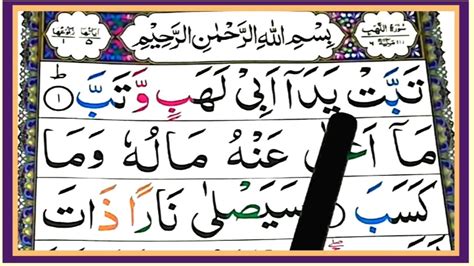 سُوْرَةُ اللَّهَبِ
بِسْمِ اللّٰهِ الرَّحْمٰنِ الرَّحِيْمِ
تَبَّتْ يَدَاۤ اَبِيْ لَهَبٍ وَّ تَبَّ ؕ ۝١
مَاۤ عَنْهُ مَالُهٗ وَمَا
كَسَبَ سَيَصْلٰى نَارًا ذَاتَ